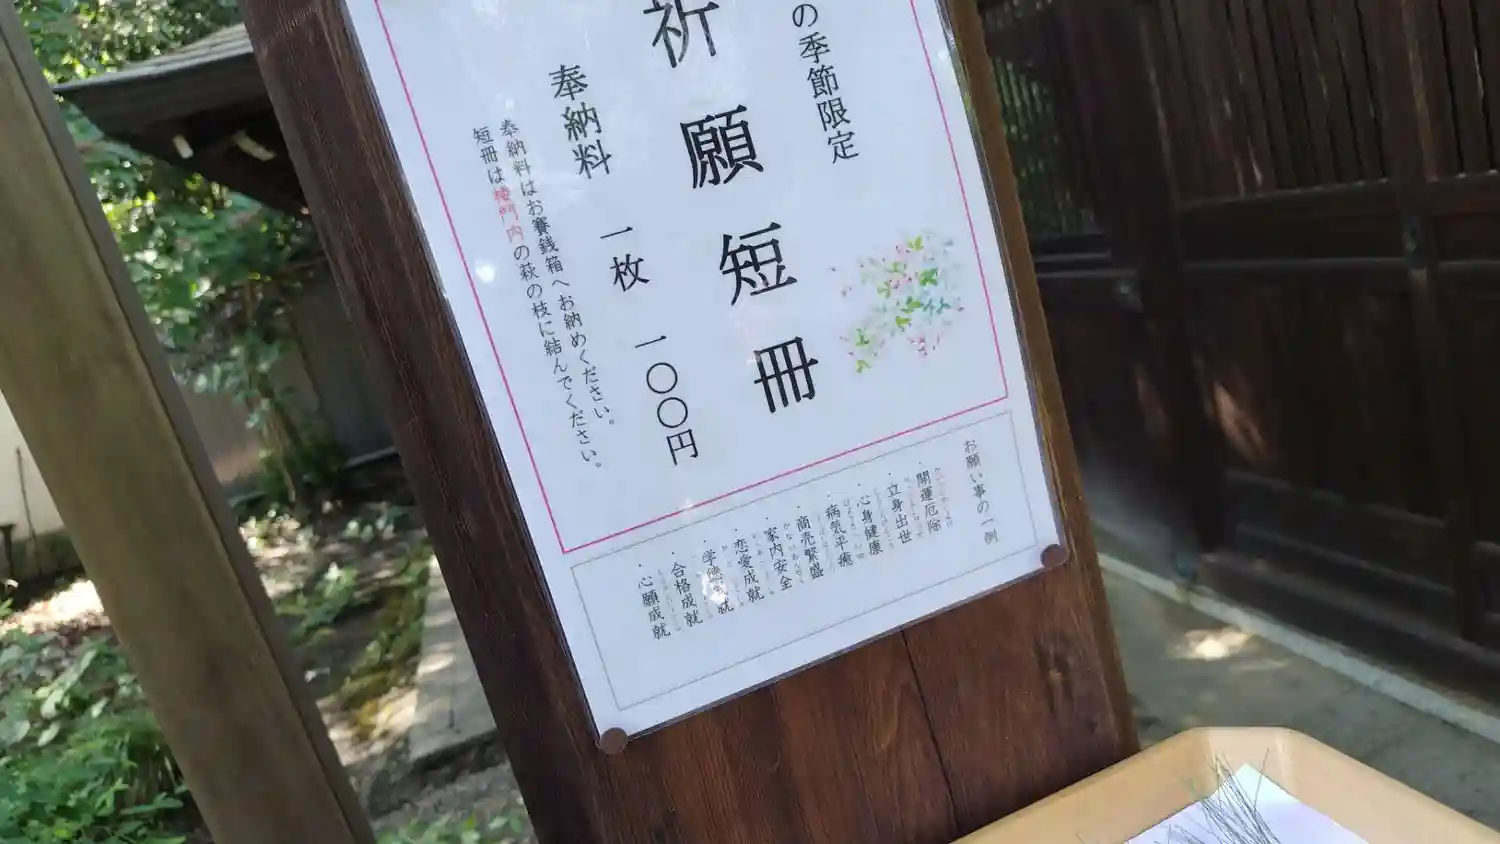 の季節限定
祈願短冊
奉納料 一枚 一〇〇円
奉納料はお賽銭箱へお納めください。
短冊は楼門内の萩の枝に結んでください。
お願い事の一例
・開運厄除
・立身出世
・心身健康
・病気平癒
・商売繁盛
・家内安全
・恋愛成就
・学徳成就
・合格成就
・心願成就